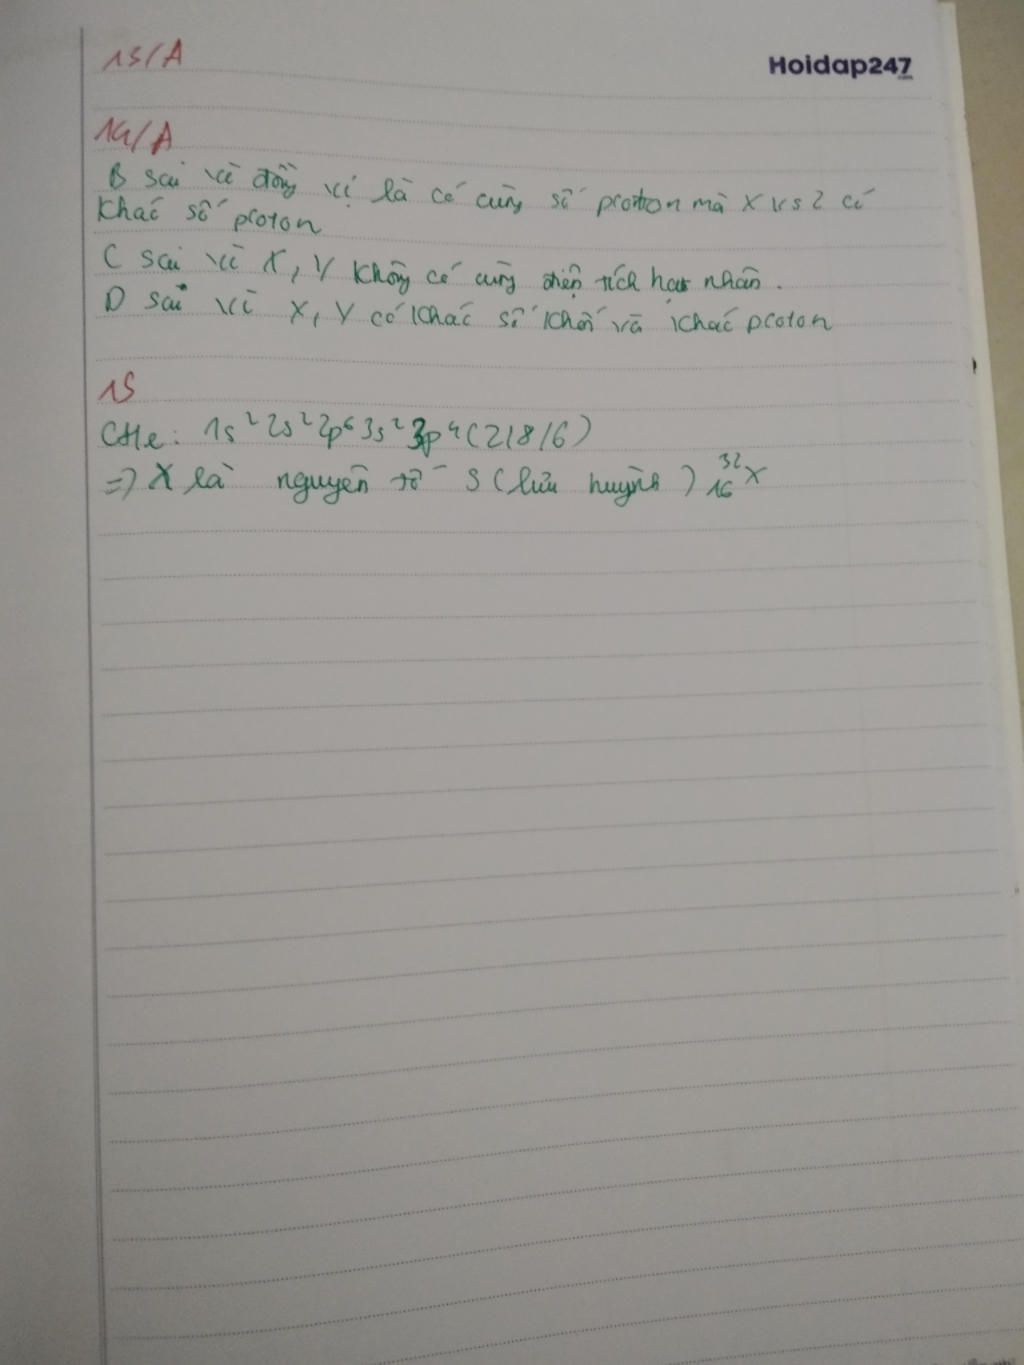 13/A
Hoidap247
14/A
B sai vì đồng vị là có cùng số proton mà X vs Z có
khác số proton
C sai vì X, Y không có cùng điện tích hạt nhân.
D sai vì X, Y có khác số khối và khác proton
15
CHe: 1s² 2s² 2p⁶ 3s² 3p⁴ (2/8/6)
=> X là nguyên tố S (lưu huỳnh) ³²₁₆X